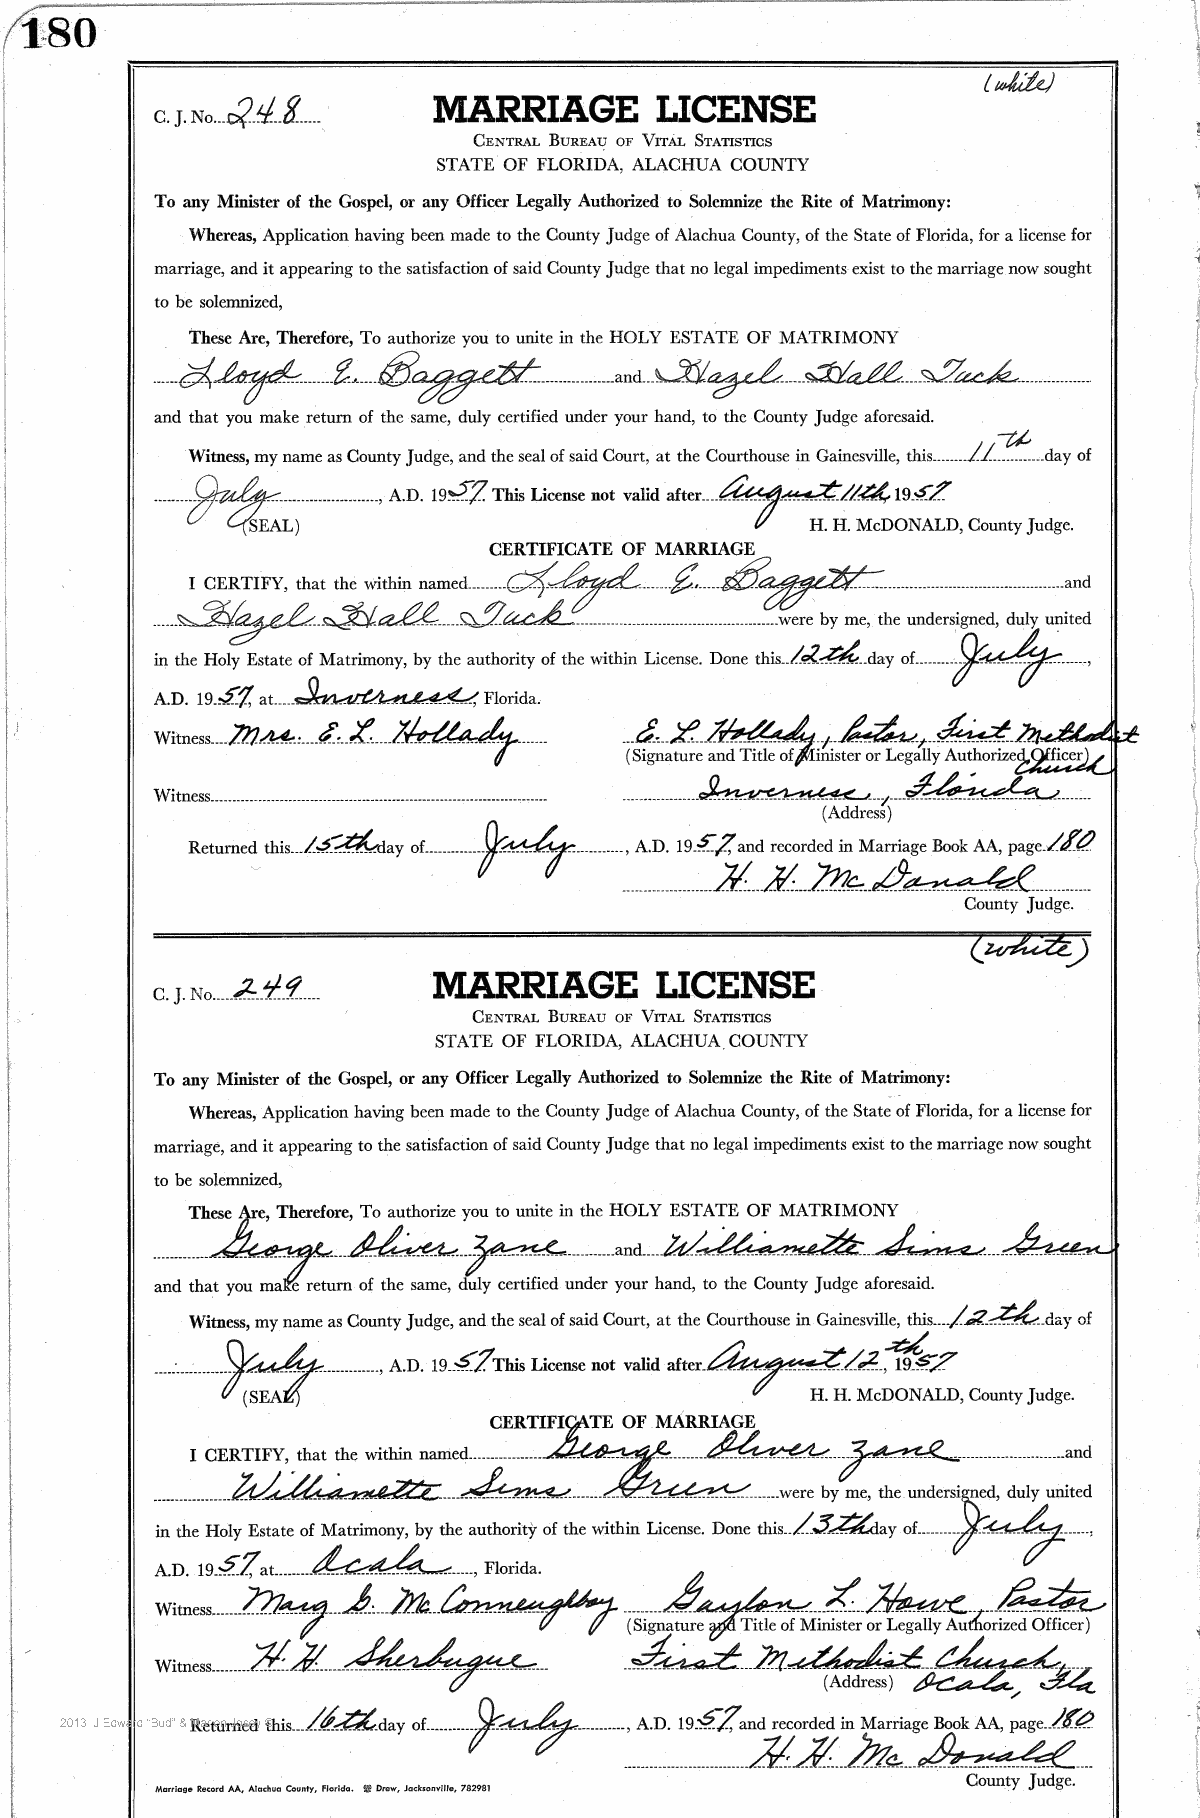 180
(white)
C. J. No. 248 MARRIAGE LICENSE
CENTRAL BUREAU OF VITAL STATISTICS
STATE OF FLORIDA, ALACHUA COUNTY
To any Minister of the Gospel, or any Officer Legally Authorized to Solemnize the Rite of Matrimony:
Whereas, Application having been made to the County Judge of Alachua County, of the State of Florida, for a license for
marriage, and it appearing to the satisfaction of said County Judge that no legal impediments exist to the marriage now sought
to be solemnized,
These Are, Therefore, To authorize you to unite in the HOLY ESTATE OF MATRIMONY
Lloyd E. Baggett and Hazel Hall Tuck
and that you make return of the same, duly certified under your hand, to the County Judge aforesaid.
Witness, my name as County Judge, and the seal of said Court, at the Courthouse in Gainesville, this 11th day of
July, A.D. 1957. This License not valid after August 11th, 1957
(SEAL) H. H. McDONALD, County Judge.
CERTIFICATE OF MARRIAGE
I CERTIFY, that the within named Lloyd E. Baggett and
Hazel Hall Tuck were by me, the undersigned, duly united
in the Holy Estate of Matrimony, by the authority of the within License. Done this 12th day of July,
A.D. 1957, at Inverness, Florida.
Witness Mrs. E. L. Hollady E. L. Hollady, Pastor, First Methodist
(Signature and Title of Minister or Legally Authorized Officer)
Church
Witness Inverness, Florida
(Address)
Returned this 15th day of July, A.D. 1957, and recorded in Marriage Book AA, page 180
H. H. McDonald
County Judge.
(white)
C. J. No. 249 MARRIAGE LICENSE
CENTRAL BUREAU OF VITAL STATISTICS
STATE OF FLORIDA, ALACHUA COUNTY
To any Minister of the Gospel, or any Officer Legally Authorized to Solemnize the Rite of Matrimony:
Whereas, Application having been made to the County Judge of Alachua County, of the State of Florida, for a license for
marriage, and it appearing to the satisfaction of said County Judge that no legal impediments exist to the marriage now sought
to be solemnized,
These Are, Therefore, To authorize you to unite in the HOLY ESTATE OF MATRIMONY
George Oliver Zane and Williamette Sims Green
and that you make return of the same, duly certified under your hand, to the County Judge aforesaid.
Witness, my name as County Judge, and the seal of said Court, at the Courthouse in Gainesville, this 12th day of
July, A.D. 1957. This License not valid after August 12th, 1957
(SEAL) H. H. McDONALD, County Judge.
CERTIFICATE OF MARRIAGE
I CERTIFY, that the within named George Oliver Zane and
Williamette Sims Green were by me, the undersigned, duly united
in the Holy Estate of Matrimony, by the authority of the within License. Done this 13th day of July,
A.D. 1957, at Ocala, Florida.
Witness G. Gaylon L. Howe, Pastor
(Signature and Title of Minister or Legally Authorized Officer)
Witness H. H. First Methodist Church,
(Address) Ocala, Fla
2013 J Edward "Bud" &
Returned this 16th day of July, A.D. 1957, and recorded in Marriage Book AA, page 180
H. H. McDonald
County Judge.
Marriage Record AA, Alachua County, Florida. Drew, Jacksonville, 782981